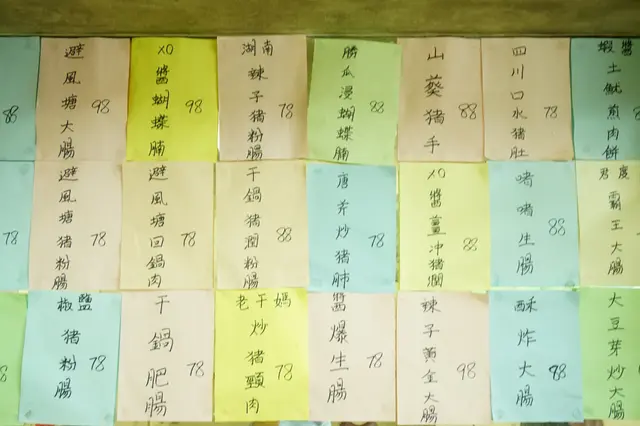 88
避風塘大腸 98
XO醬蝴蝶腩 98
湖南辣子猪粉腸 78
勝瓜浸蝴蝶腩 88
山葵猪手 88
四川口水猪肚 78
蝦醬土魷煎肉餅
78
避風塘猪粉腸 78
避風塘回鍋肉 78
干鍋猪潤粉腸 88
唐芹炒猪肺 78
XO醬薑冲猪潤 88
啫啫生腸 88
君度霸王大腸
8
椒鹽猪粉腸 78
干鍋肥腸 78
老干媽炒猪頸肉 78
醬爆生腸 78
辣子黃金大腸 98
酥炸大腸 98
大豆芽炒大腸